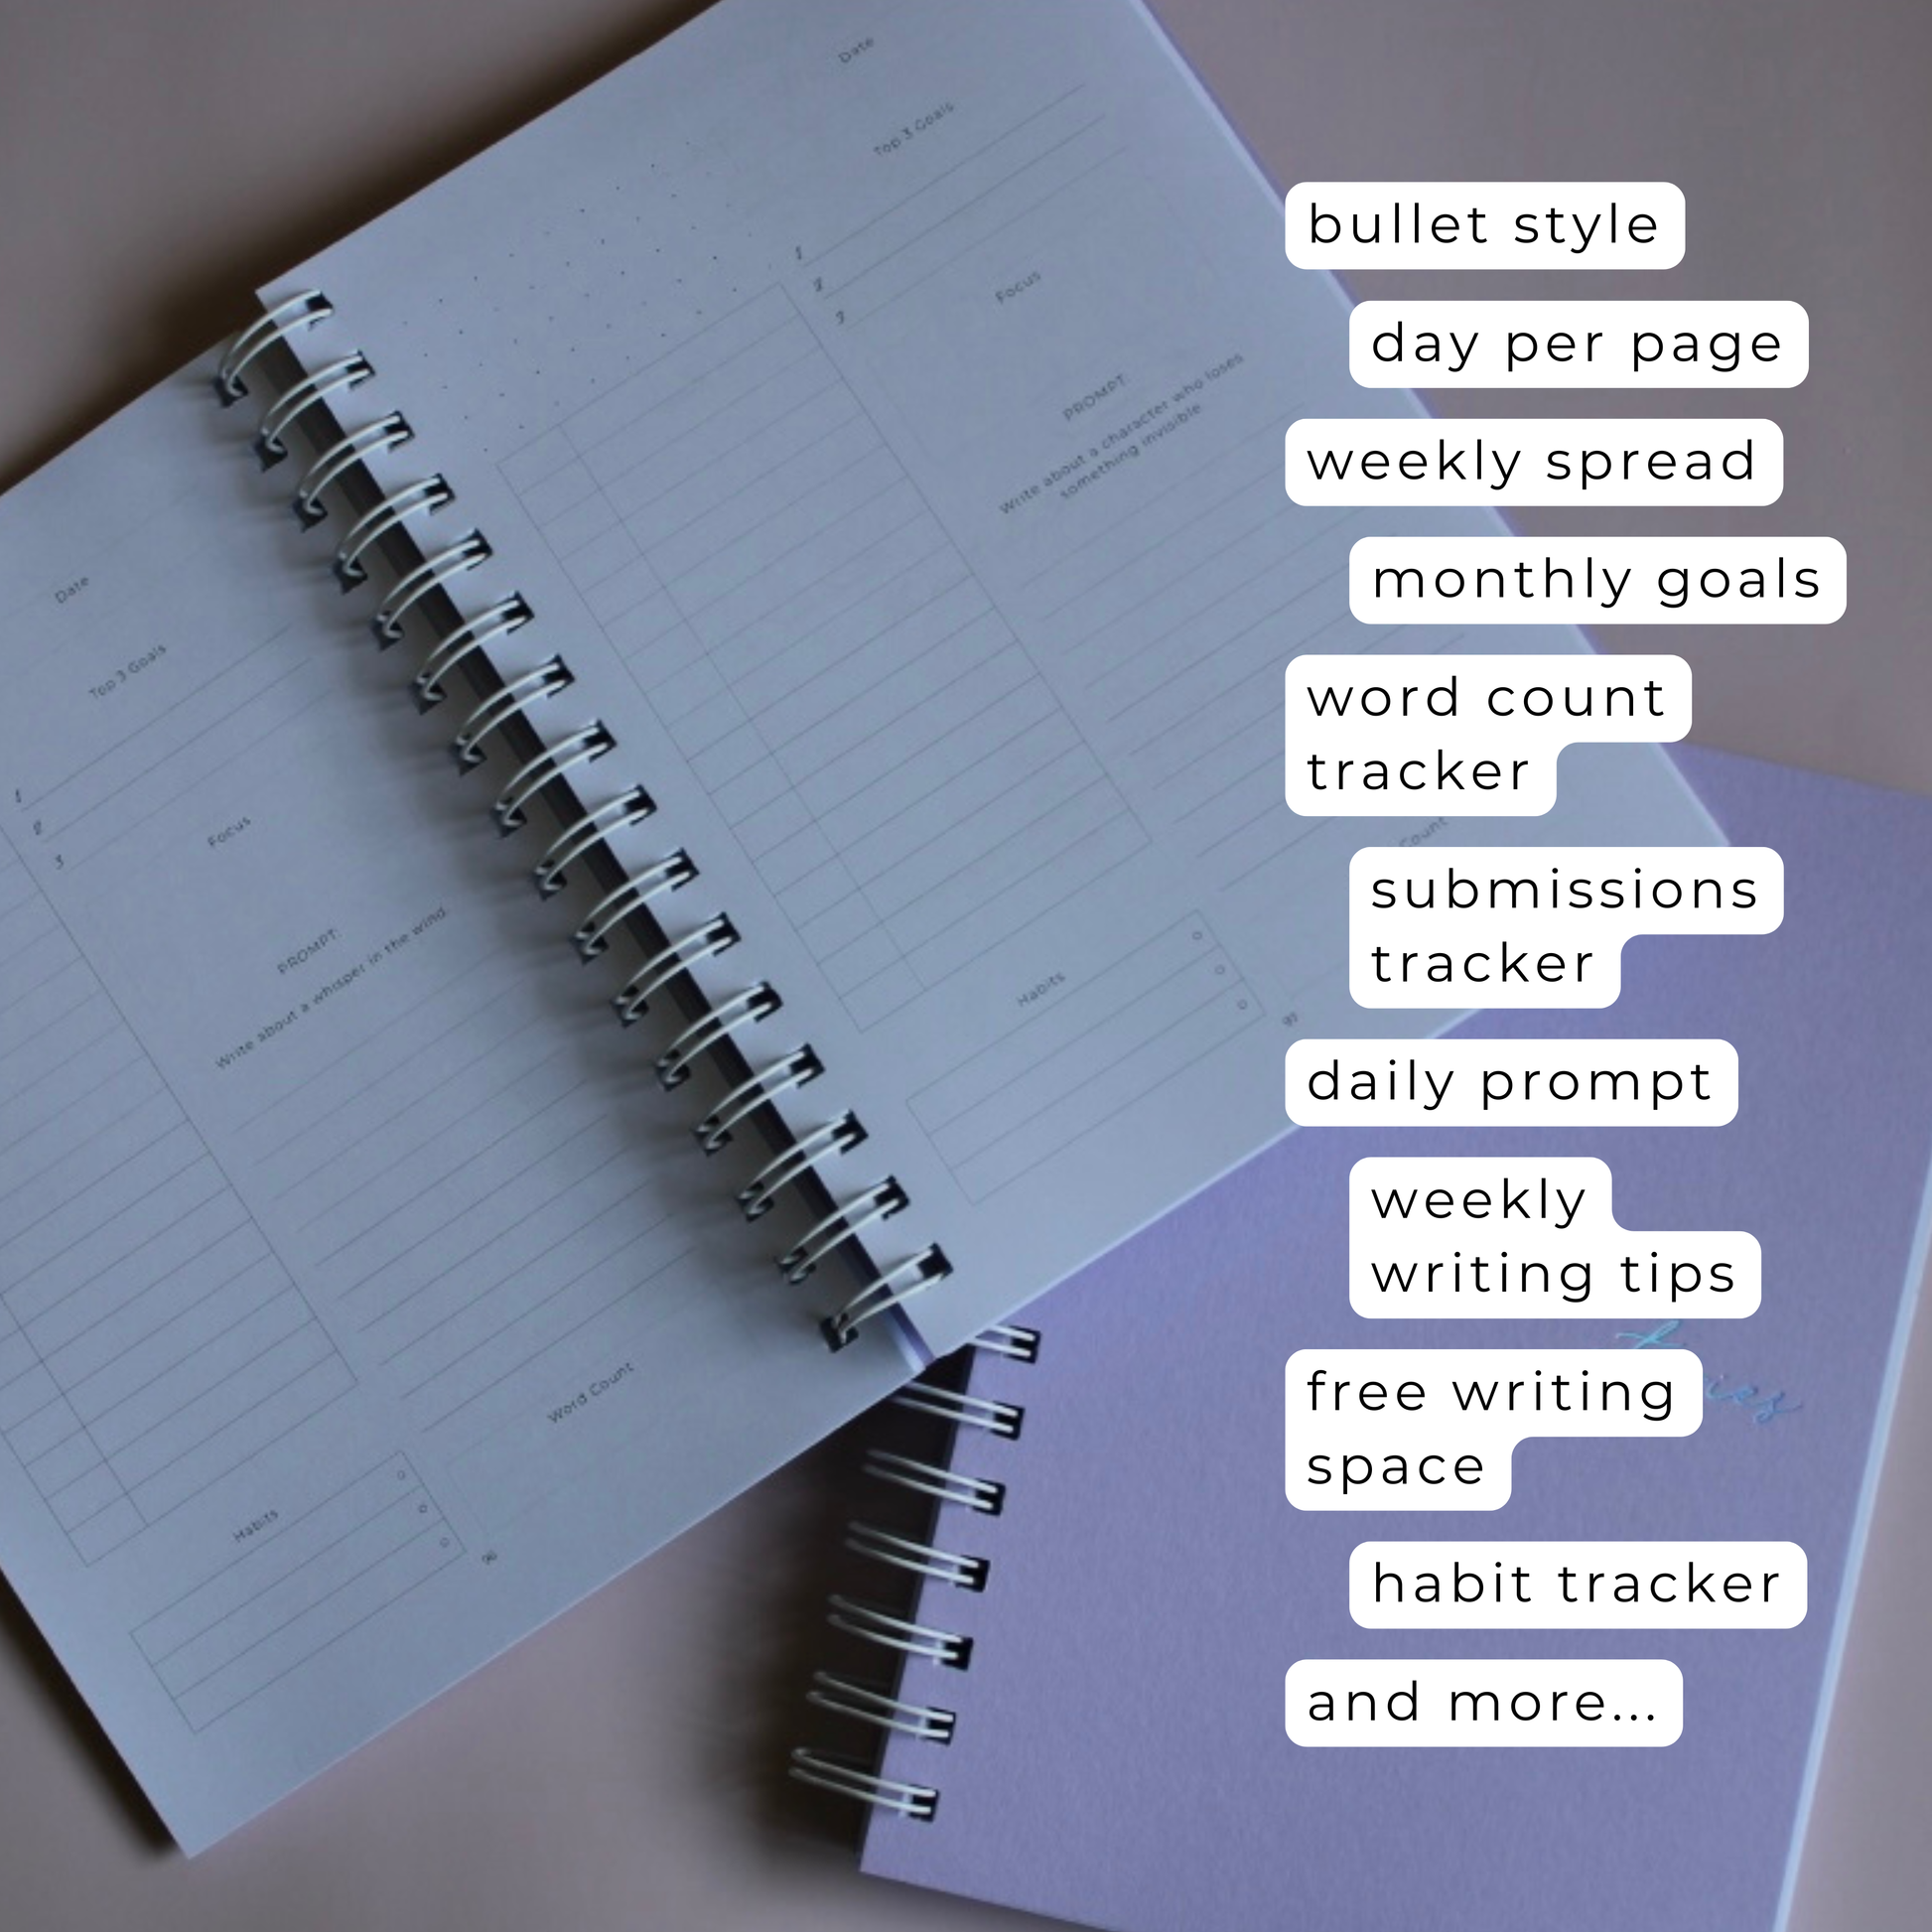 Date
Top 3 Goals
1
2
3
Focus
PROMPT:
Write about a whisper in the wind.
Word Count
Habits
96
Date
Top 3 Goals
1
2
3
Focus
PROMPT:
Write about a character who loses
something invisible.
Count
Habits
97
bullet style
day per page
weekly spread
monthly goals
word count
tracker
submissions
tracker
daily prompt
weekly
writing tips
free writing
space
habit tracker
and more...